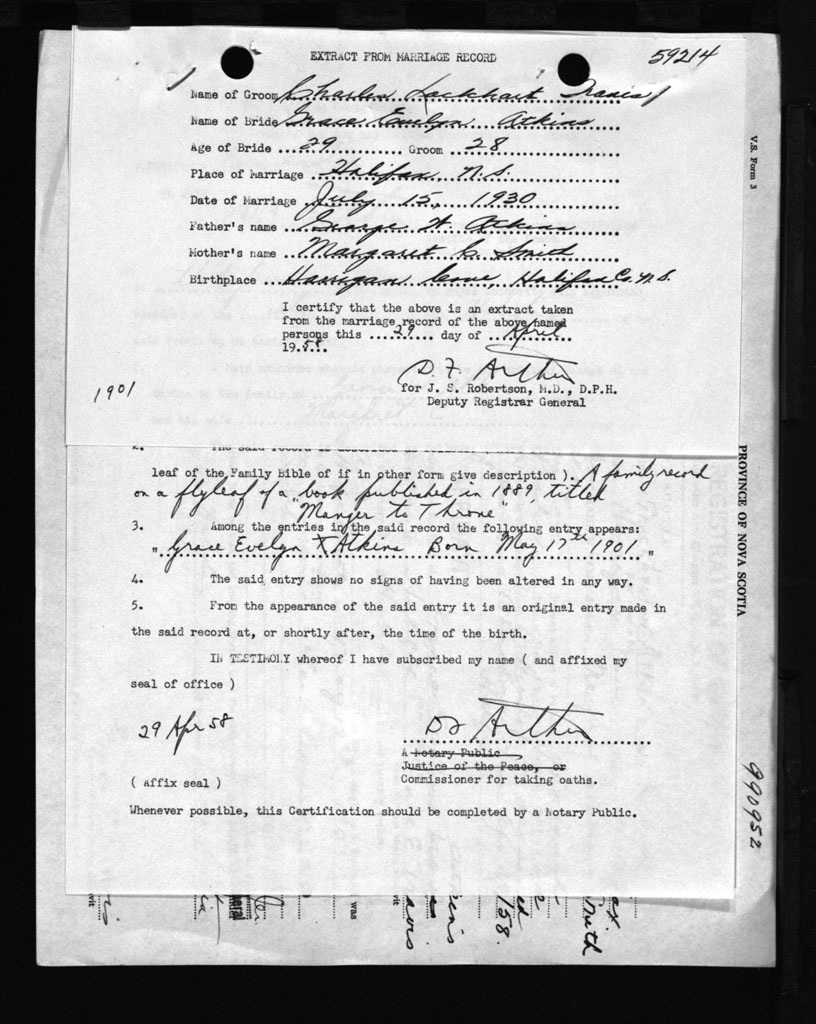 EXTRACT FROM MARRIAGE RECORD
59214
Name of Groom Charles Lockhart Travis
Name of Bride Grace Evelyn Atkins
Age of Bride 29 Groom 28
Place of Marriage Halifax N.S.
Date of Marriage July 15, 1930
Father's name George W. Atkins
Mother's name Margaret C. Smith
Birthplace Harrigan Cove, Halifax Co. N.S.
I certify that the above is an extract taken
from the marriage record of the above named
persons this 29 day of April
19 58.
D. F. Arthur
for J. S. Robertson, M.D., D.P.H.
Deputy Registrar General
1901
V.S. Form 3
2. The said record is described as
leaf of the Family Bible of if in other form give description ). A family record
on a flyleaf of a book published in 1889, titled
"Manger to Throne"
3. Among the entries in the said record the following entry appears:
" Grace Evelyn Atkins Born May 17th 1901 "
4. The said entry shows no signs of having been altered in any way.
5. From the appearance of the said entry it is an original entry made in
the said record at, or shortly after, the time of the birth.
IN TESTIMONY whereof I have subscribed my name ( and affixed my
seal of office )
29 Apr 58
D F Arthur
A Notary Public
Justice of the Peace, or
Commissioner for taking oaths.
( Affix seal )
Whenever possible, this Certification should be completed by a Notary Public.
PROVINCE OF NOVA SCOTIA
990952
was
158.